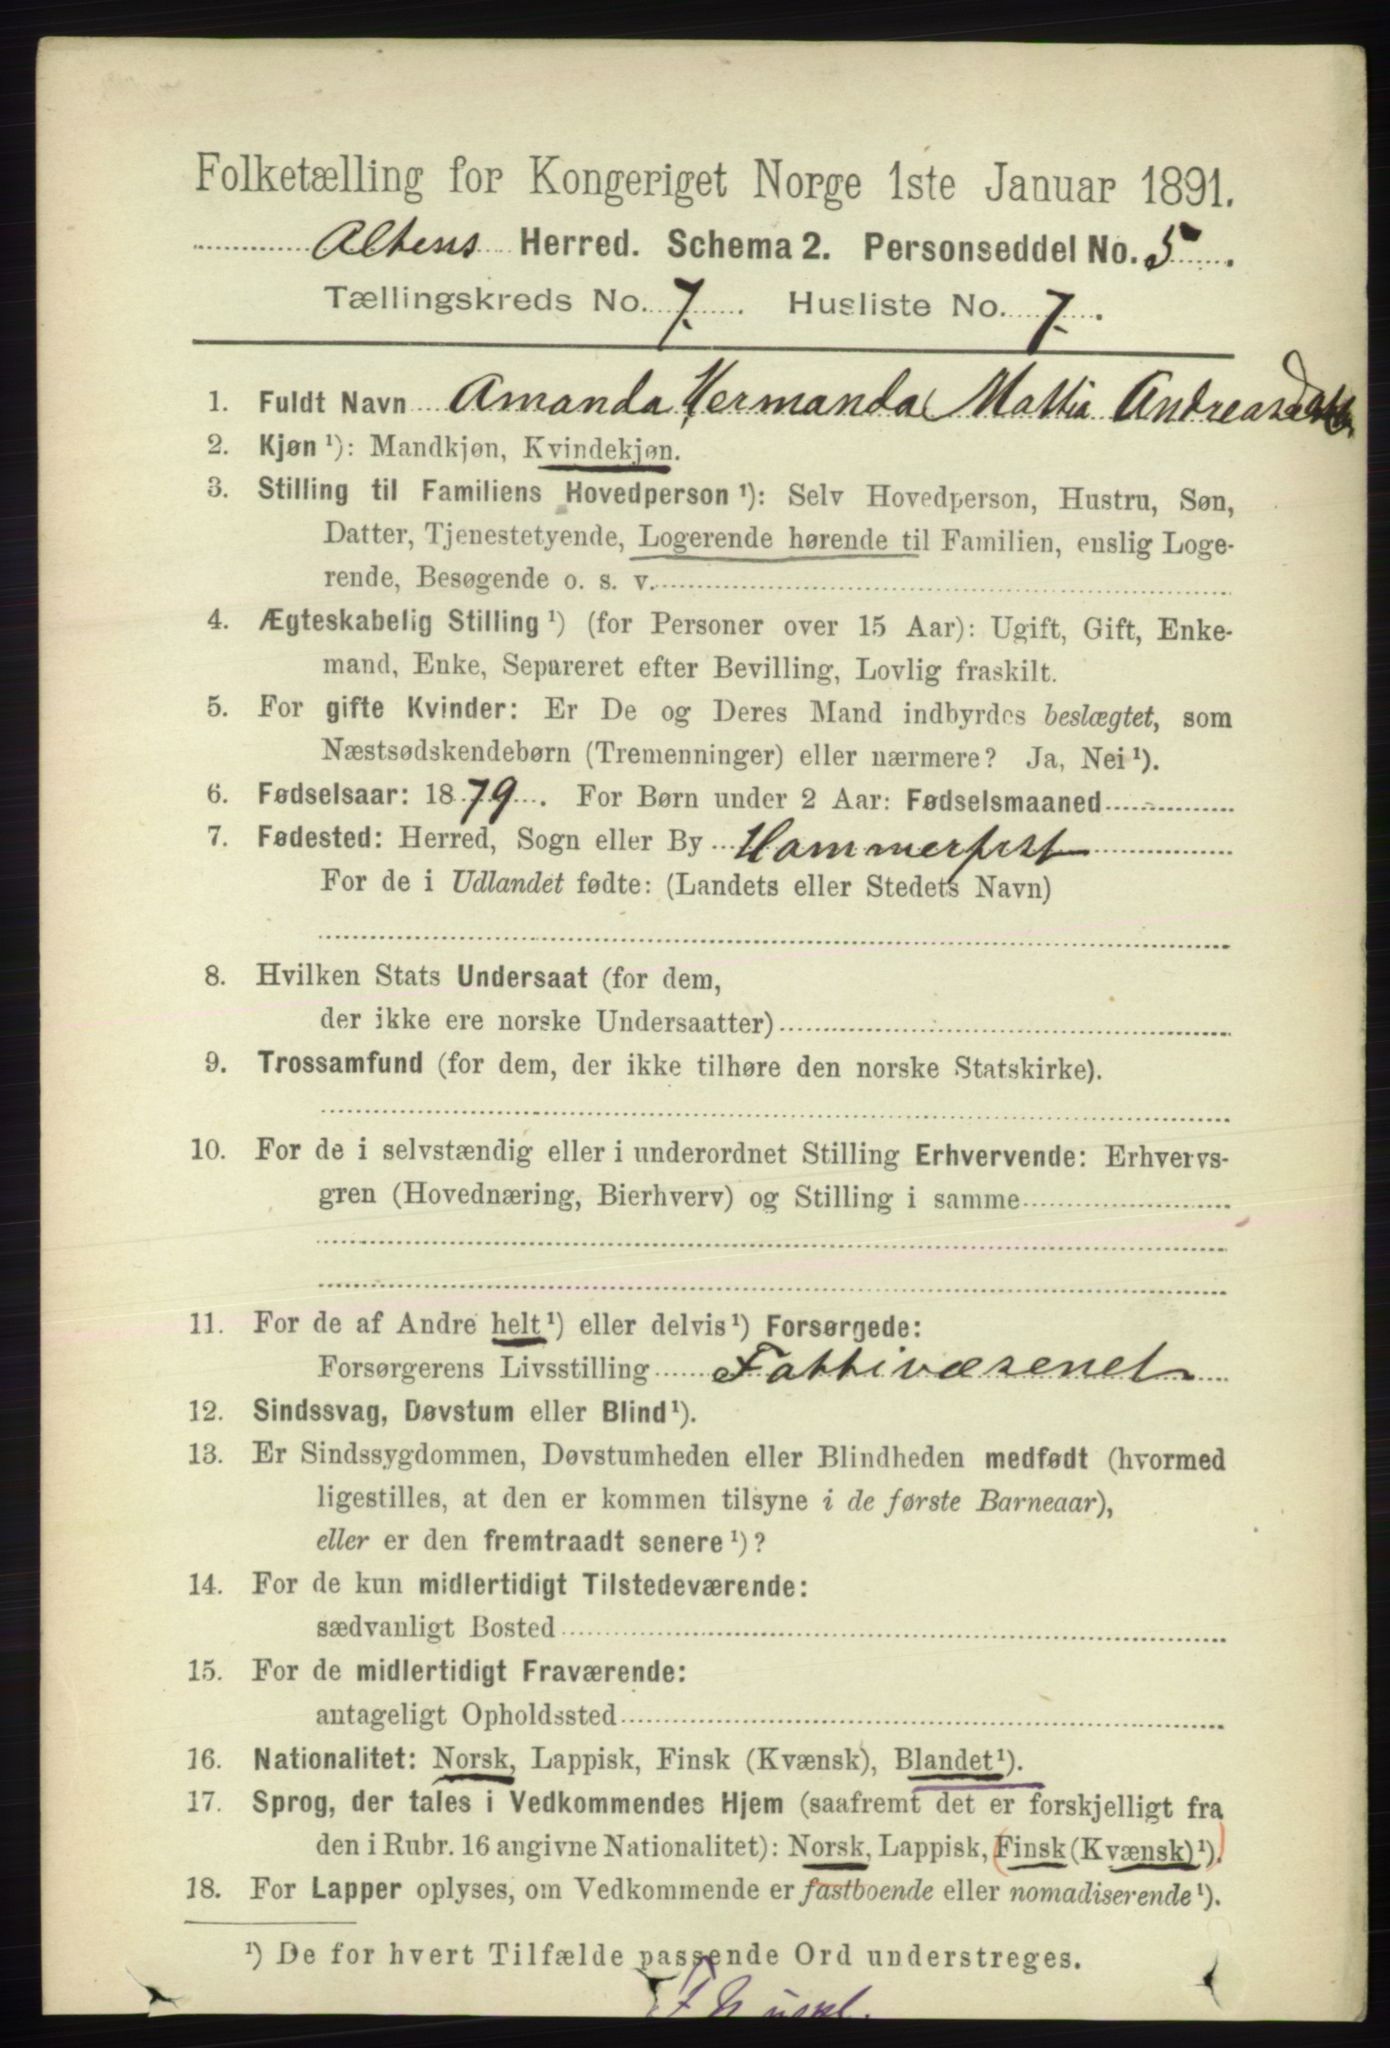 Folketælling for Kongeriget Norge 1ste Januar 1891.
Altens Herred. Schema 2. Personseddel No. 5.
Tællingskreds No. 7. Husliste No. 7.
1. Fuldt Navn Amanda Hermanda Mathia Andreasdatter
2. Kjøn ¹): Mandkjøn, Kvindekjøn.
3. Stilling til Familiens Hovedperson ¹): Selv Hovedperson, Hustru, Søn,
Datter, Tjenestetyende, Logerende hørende til Familien, enslig Loge-
rende, Besøgende o. s. v.
4. Ægteskabelig Stilling ¹) (for Personer over 15 Aar): Ugift, Gift, Enke-
mand, Enke, Separeret efter Bevilling, Lovlig fraskilt.
5. For gifte Kvinder: Er De og Deres Mand indbyrdes beslægtet, som
Næstsødskendebørn (Tremenninger) eller nærmere? Ja, Nei ¹).
6. Fødselsaar: 1879. For Børn under 2 Aar: Fødselsmaaned
7. Fødested: Herred, Sogn eller By Hammerfest
For de i Udlandet fødte: (Landets eller Stedets Navn)
8. Hvilken Stats Undersaat (for dem,
der ikke ere norske Undersaatter)
9. Trossamfund (for dem, der ikke tilhøre den norske Statskirke).
10. For de i selvstændig eller i underordnet Stilling Erhvervende: Erhvervs-
gren (Hovednæring, Bierhverv) og Stilling i samme
11. For de af Andre helt ¹) eller delvis ¹) Forsørgede:
Forsørgerens Livsstilling Fattivæsenet
12. Sindssvag, Døvstum eller Blind ¹).
13. Er Sindssygdommen, Døvstumheden eller Blindheden medfødt (hvormed
ligestilles, at den er kommen tilsyne i de første Barneaar),
eller er den fremtraadt senere ¹)?
14. For de kun midlertidigt Tilstedeværende:
sædvanligt Bosted
15. For de midlertidigt Fraværende:
antageligt Opholdssted
16. Nationalitet: Norsk, Lappisk, Finsk (Kvænsk), Blandet ¹).
17. Sprog, der tales i Vedkommendes Hjem (saafremt det er forskjelligt fra
den i Rubr. 16 angivne Nationalitet): Norsk, Lappisk, Finsk (Kvænsk) ¹).
18. For Lapper oplyses, om Vedkommende er fastboende eller nomadiserende ¹).
¹) De for hvert Tilfælde passende Ord understreges.